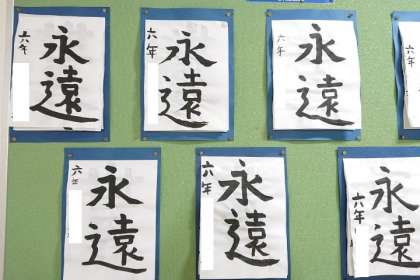 永遠
六年
永遠
六年
永遠
六年
永遠
六年
永遠
六年
永遠
六年